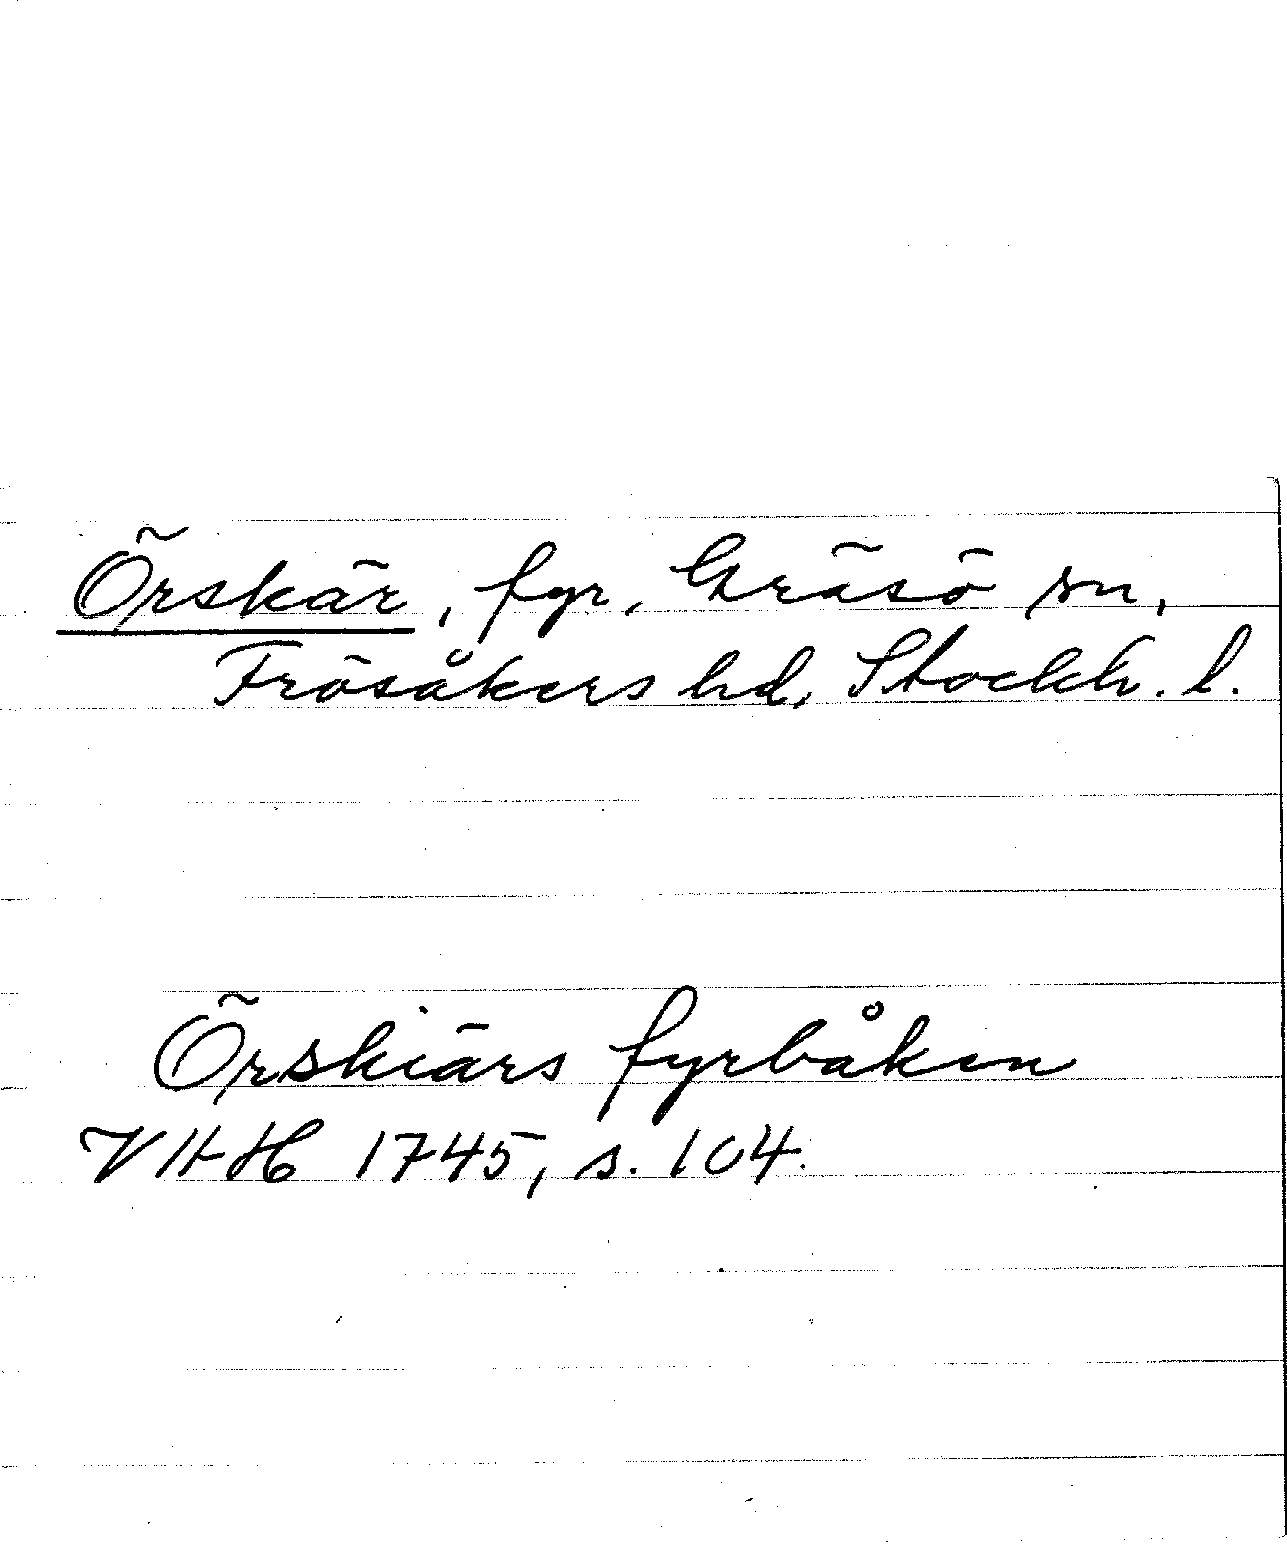 Örskär, fyr, Gräsö sn,
Frösåkers hd, Stockh. l.
Örskiärs fyrbåken
VAH 1745, s. 104.